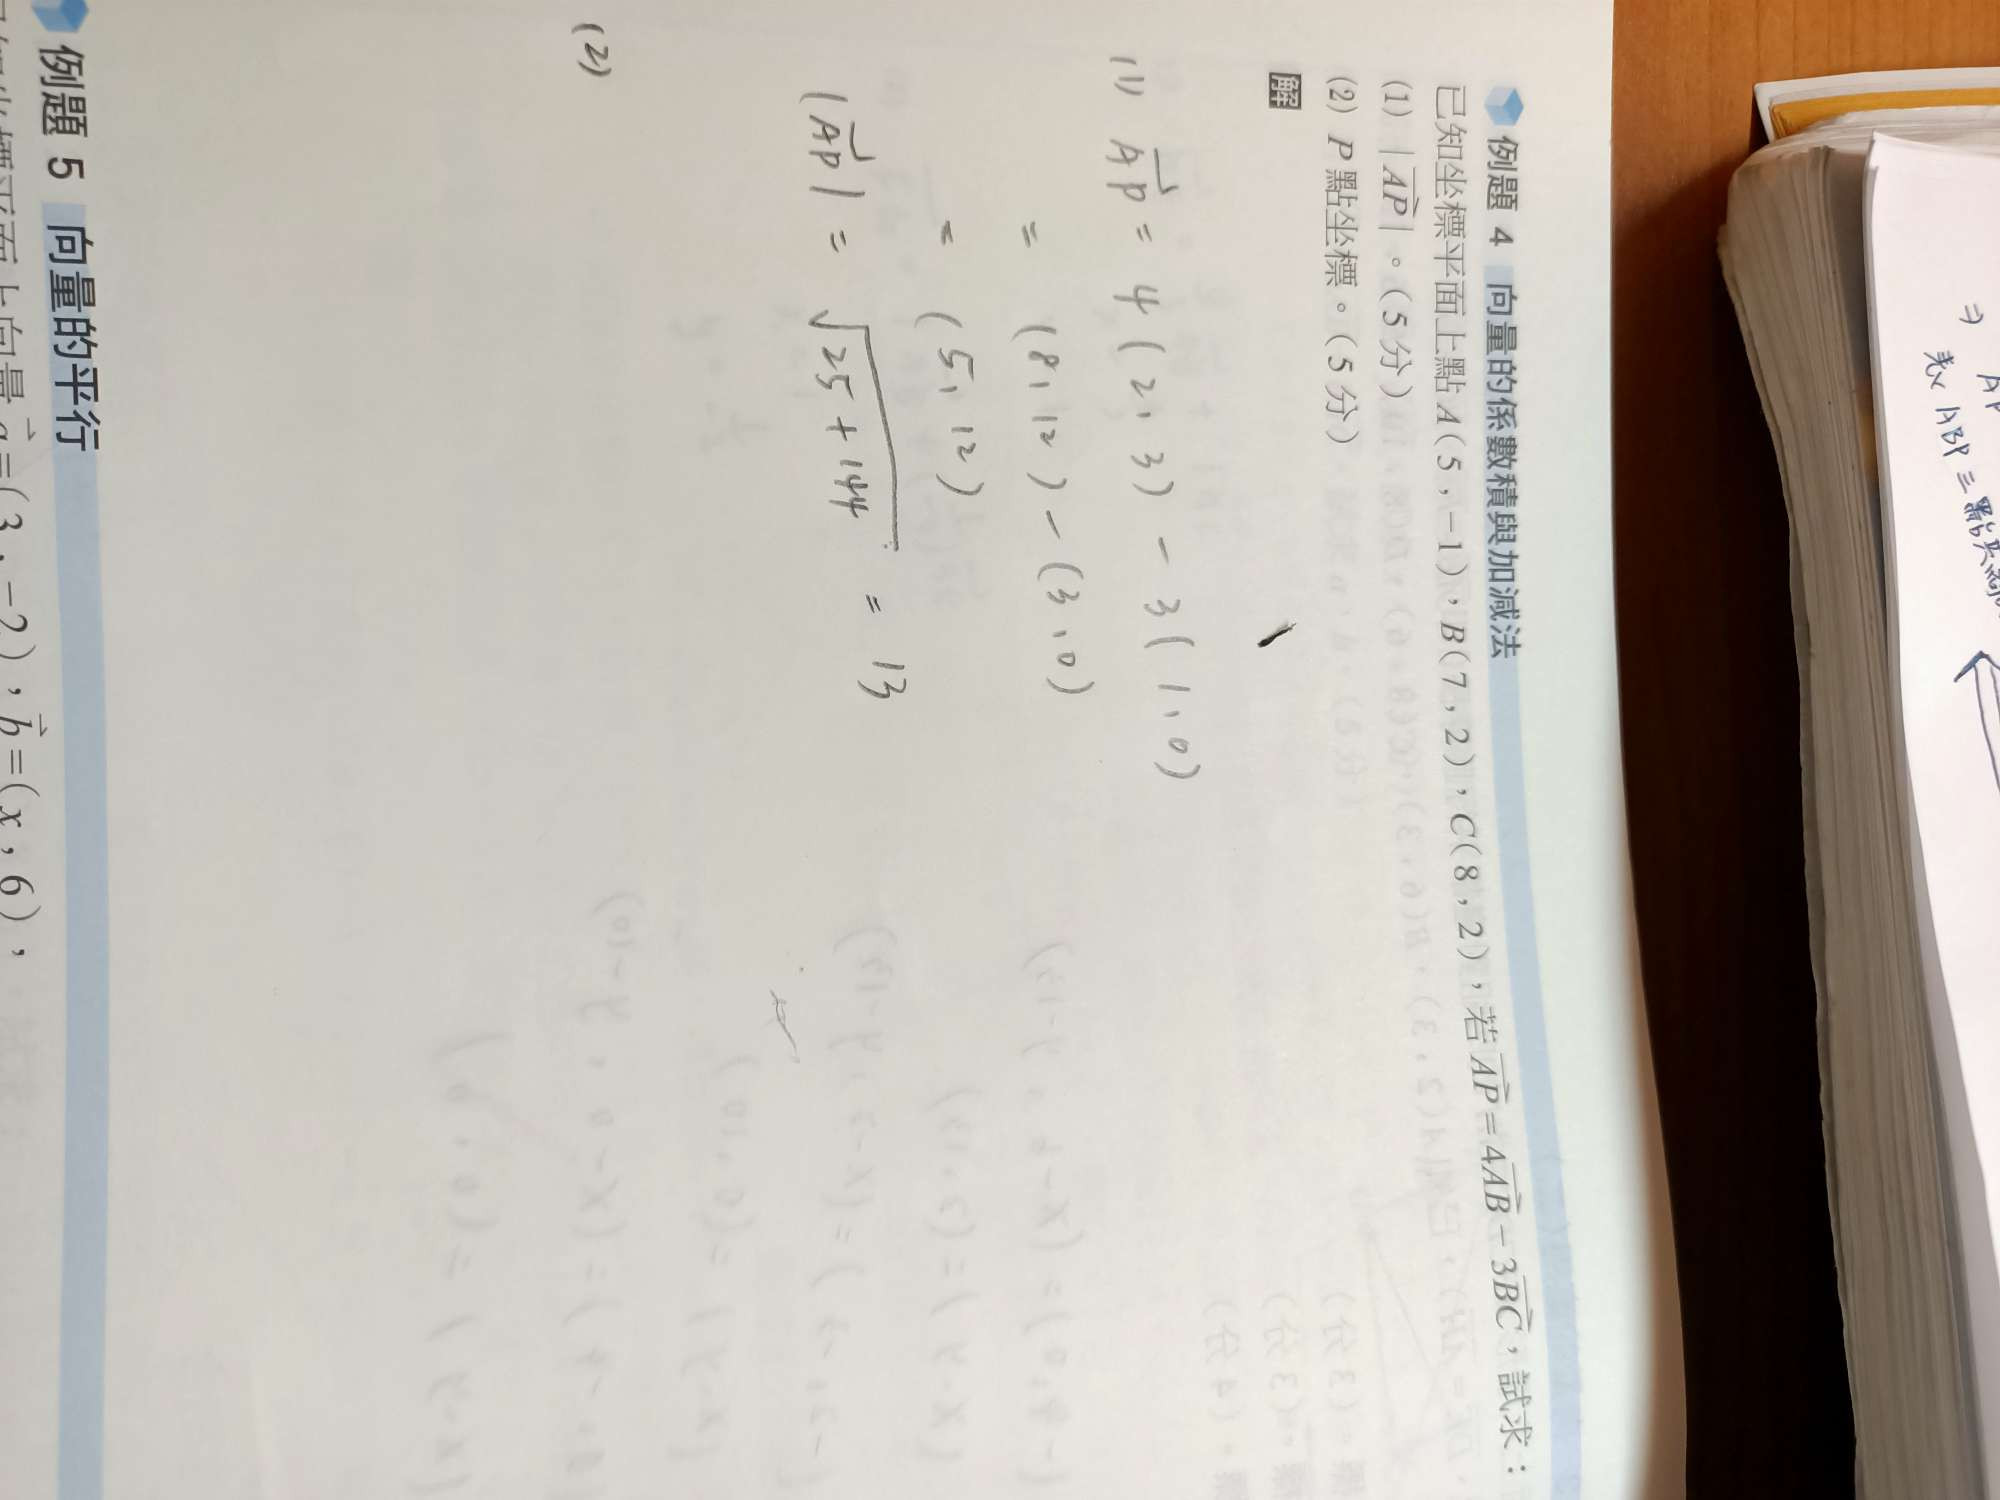 例題 4 向量的係數積與加減法
已知坐標平面上點A(5,-1),B(7,2),C(8,2),若AP=4AB-3BC,試求:
(1) |AP|。(5分)
(2) P點坐標。(5分)
解
(1) AP = 4(2,3) - 3(1,0)
= (8,12) - (3,0)
= (5,12)
|AP| = √25+144 = 13
(2)
例題 5 向量的平行
坐標平面上向量a=(3,-2),b=(x,6),
⇒ AP
表 ABP三點共